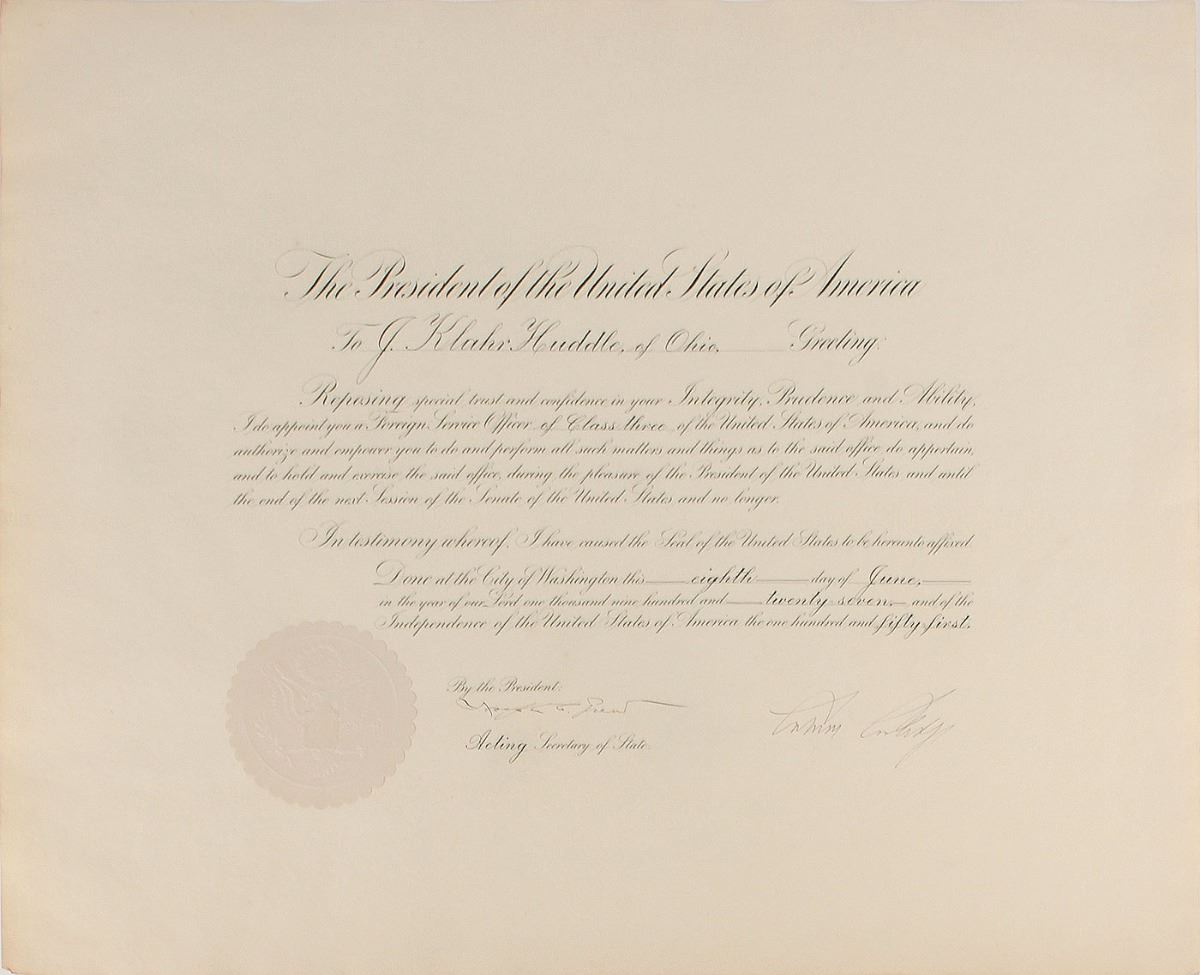 The President of the United States of America
To J. Klahr Huddle, of Ohio, Greeting:
Reposing special trust and confidence in your Integrity, Prudence and Ability,
I do appoint you a Foreign Service Officer of Class three of the United States of America, and do
authorize and empower you to do and perform all such matters and things as to the said office do appertain,
and to hold and exercise the said office, during the pleasure of the President of the United States and until
the end of the next Session of the Senate of the United States and no longer.
In testimony whereof, I have caused the Seal of the United States to be hereunto affixed.
Done at the City of Washington this eighth day of June,
in the year of our Lord one thousand nine hundred and twenty seven, and of the
Independence of the United States of America the one hundred and fifty first.
By the President:
Joseph C. Grew
Calvin Coolidge
Acting Secretary of State.